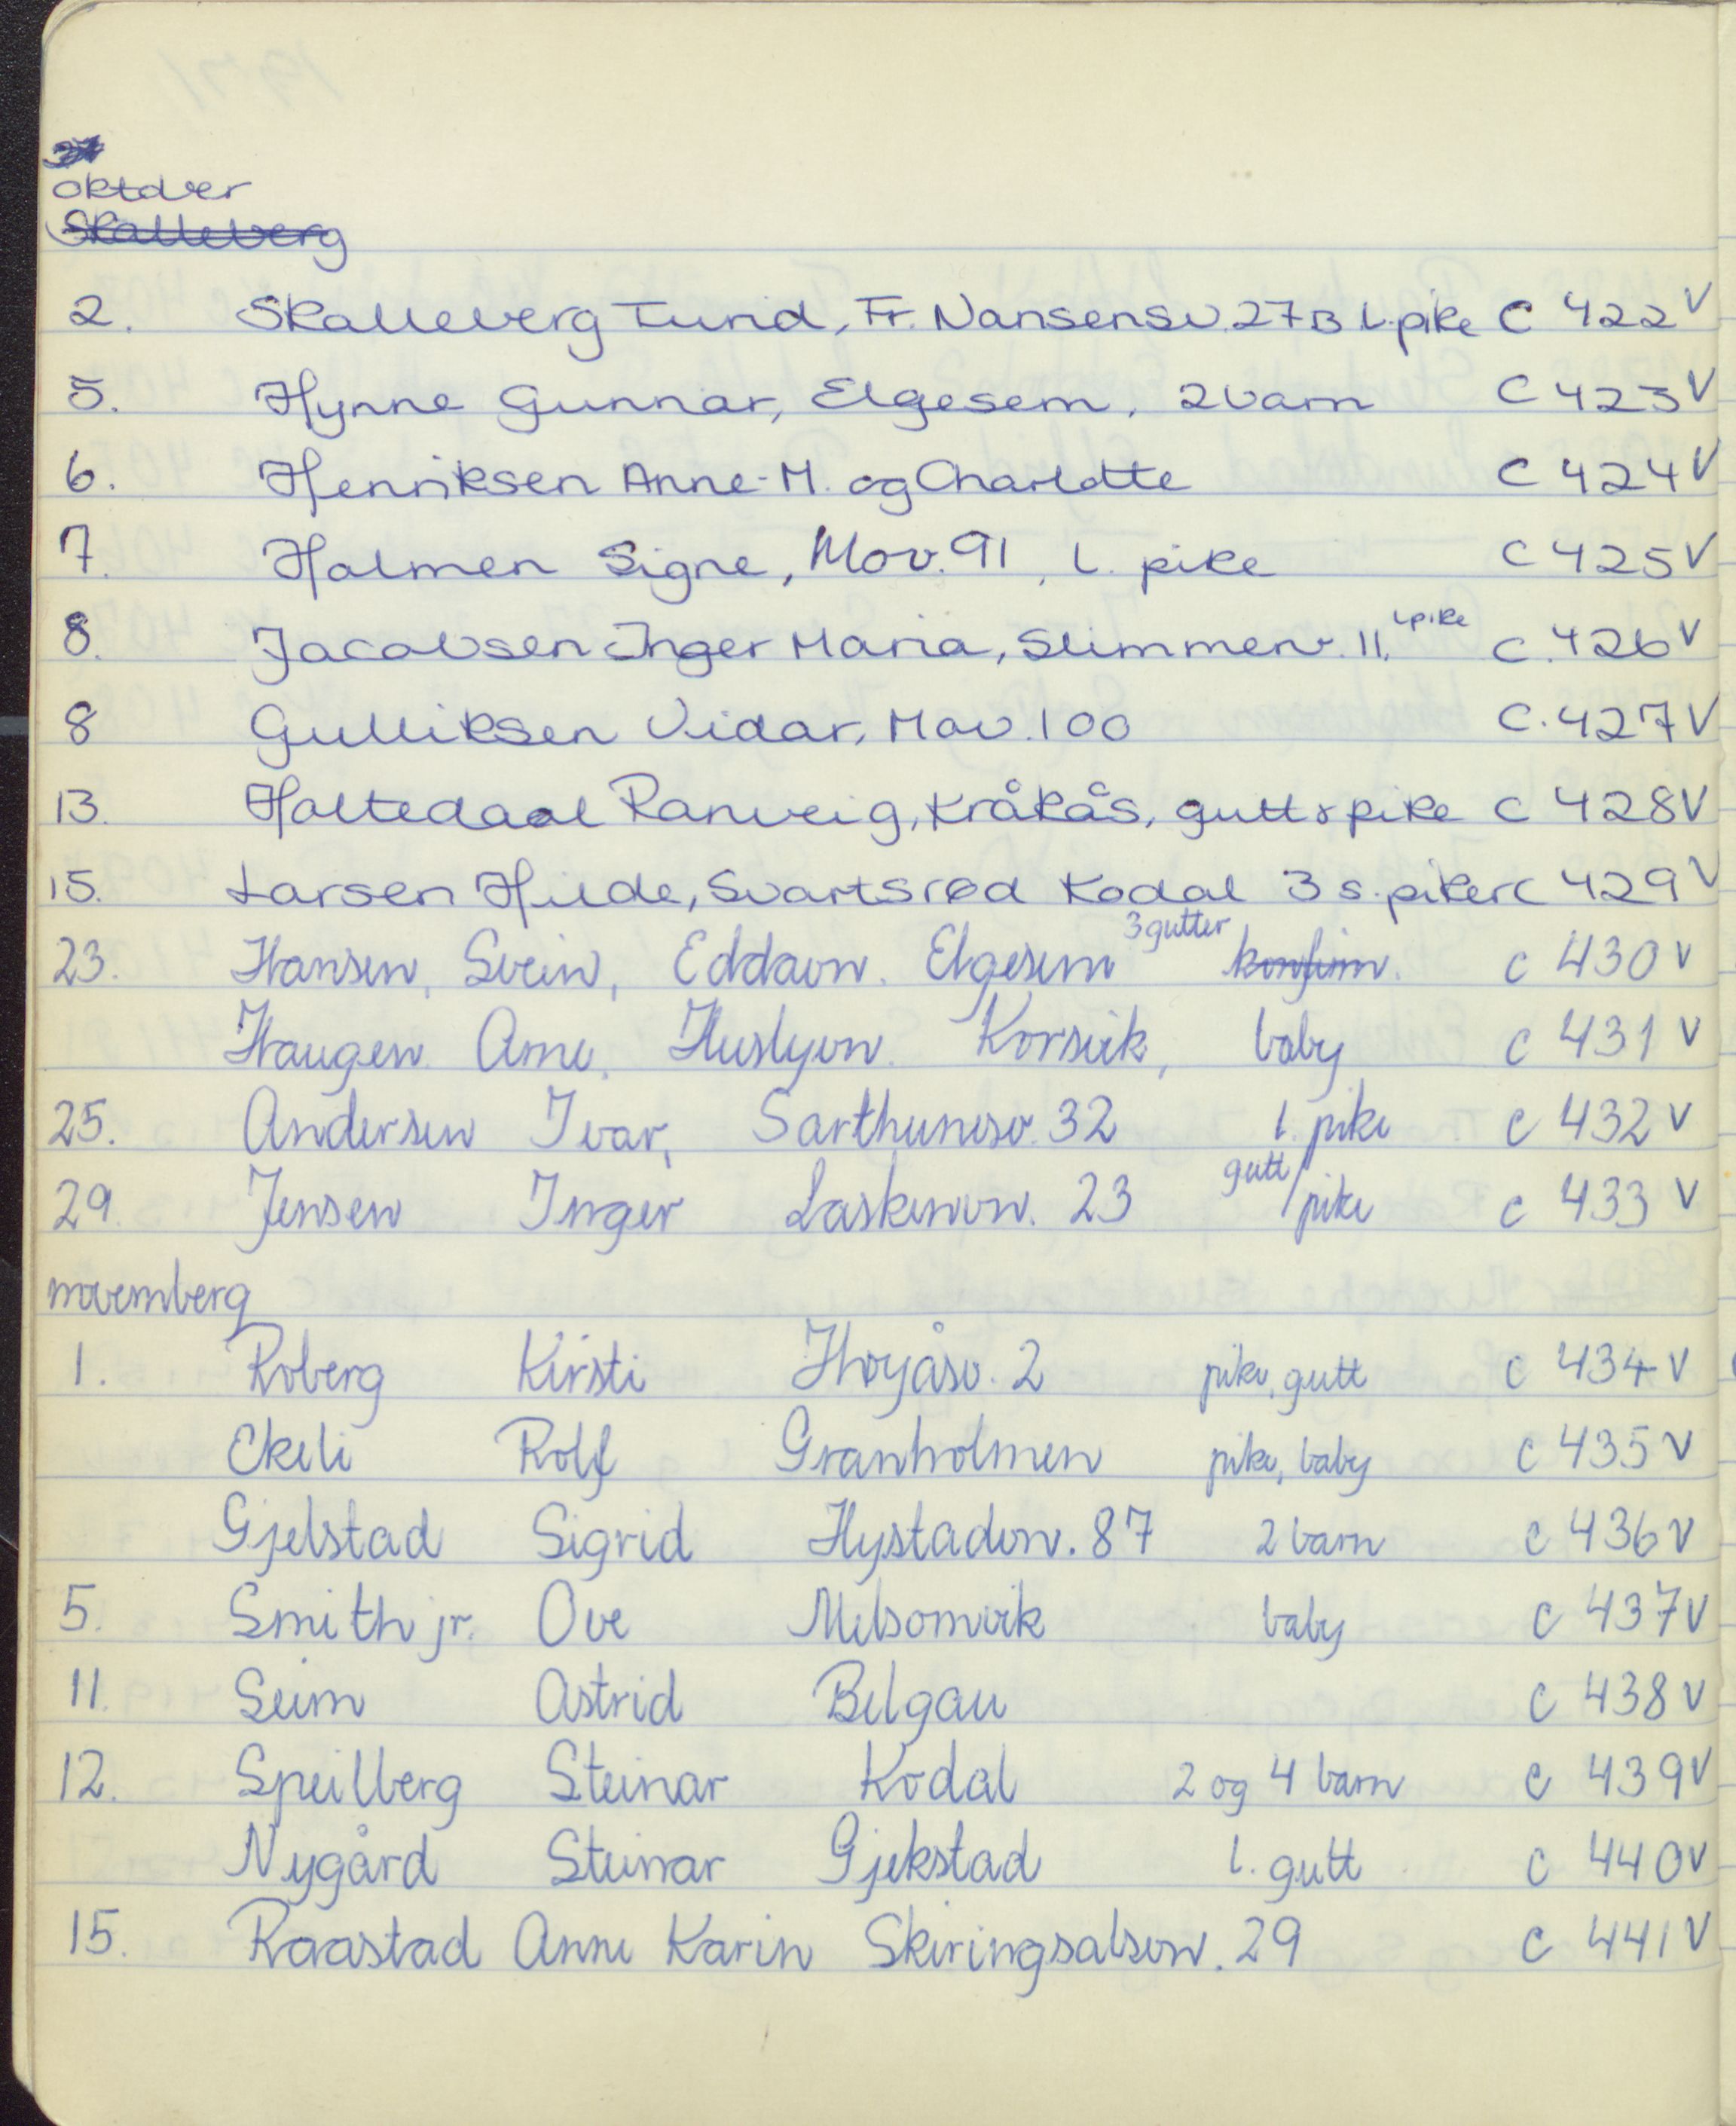 oktober
Skalleberg
2. Skalleberg Turid, Fr. Nansensv. 27B l. pike C 422 V
5. Hynne Gunnar, Elgesem, 2 barn C 423 V
6. Henriksen Anne-M. og Charlotte C 424 V
7. Holmen Signe, Mov. 91, l. pike C 425 V
8. Jacobsen Inger Maria, Slimmenv. 11. l pike C. 426 V
8 Gulliksen Vidar, Mov. 100 C. 427 V
13. Holtedaal Ranveig, Kråkås, gutt & pike C 428 V
15. Larsen Hilde, Svartsrød Kodal 3 s. piker C 429 V
23. Hansen, Svein, Eddavn. Elgesem 3 gutter konfirm. C 430 V
Haugen Arne, Huslyvn. Korsvik, baby C 431 V
25. Andersen Ivar, Sarthunesv. 32 l. pike C 432 V
29. Jensen Inger Laskenvn. 23 gutt/pike C 433 V
novemberg
1. Roberg Kirsti Høyåsv. 2 pike, gutt C 434 V
Ekeli Rolf Granholmen pike, baby C 435 V
Gjelstad Sigrid Hystadvn. 87 2 barn C 436 V
5. Smith jr. Ove Melsomvik baby C 437 V
11. Seim Astrid Belgau C 438 V
12. Speilberg Steinar Kodal 2 og 4 barn C 439 V
Nygård Steinar Gjekstad l. gutt C 440 V
15. Raastad Anne Karin Skiringsalsvn. 29 C 441 V